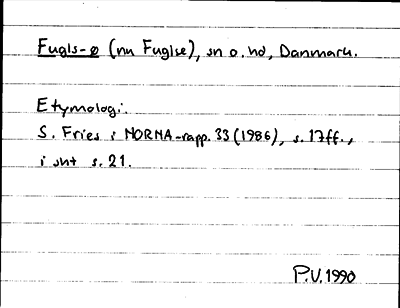 Fugls-ø (nu Fuglse), sn o. hd, Danmark.
Etymologi:
S. Fries i NORNA-rapp. 33 (1986), s. 17ff.,
i snt s. 21.
P.V. 1990